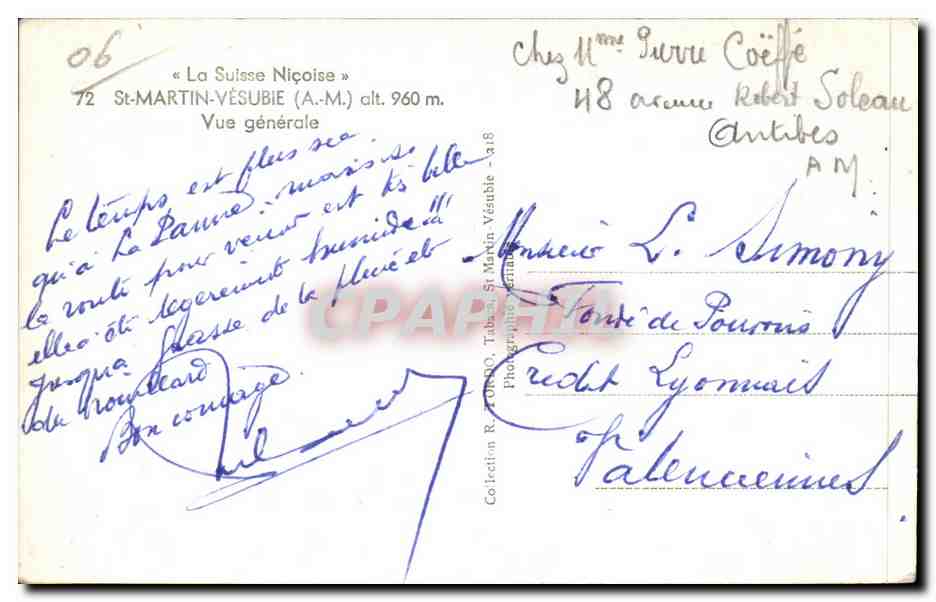 06
« La Suisse Niçoise »
72 St-MARTIN-VÉSUBIE (A.-M.) alt. 960 m.
Vue générale
Chez Mme Pierre Coëffé
48 avenue Robert Soleau
Antibes
A M.
Le temps est plus sec
qu'à La Panne, mais si
la route pour venir est très belle
elle a été legerement humide !!!
jusqu'à Grasse de la pluie et
du brouillard
Bon courage.
Collection R. TORDO, Tabacs, St Martin-Vésubie - 218
Photographie Véritable
Monsieur L. Simony
Fondé de Pouvoirs
Credit Lyonnais
Valenciennes
CPAPHIL